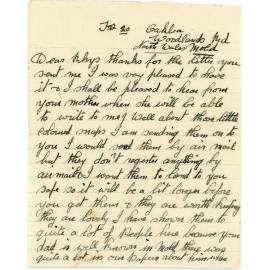 Feb 20
Woodlands Rd
North Wales Mold
Dear Rhys thanks for the letter you
sent me I was very pleased to have
it & I shall be pleased to hear from
your mother when she will be able
to write to me & Well about those little
colored snaps I am sending them on to
you I would send them by air mail
but they don't register anything by
air mail & I want them to land to you
safe so it will be a bit longer before
you get them & they are worth having
they are lovely I have shown them to
quite a lot of People here because your
dad is well known in Mold they was
quite a lot in our Papers about him when